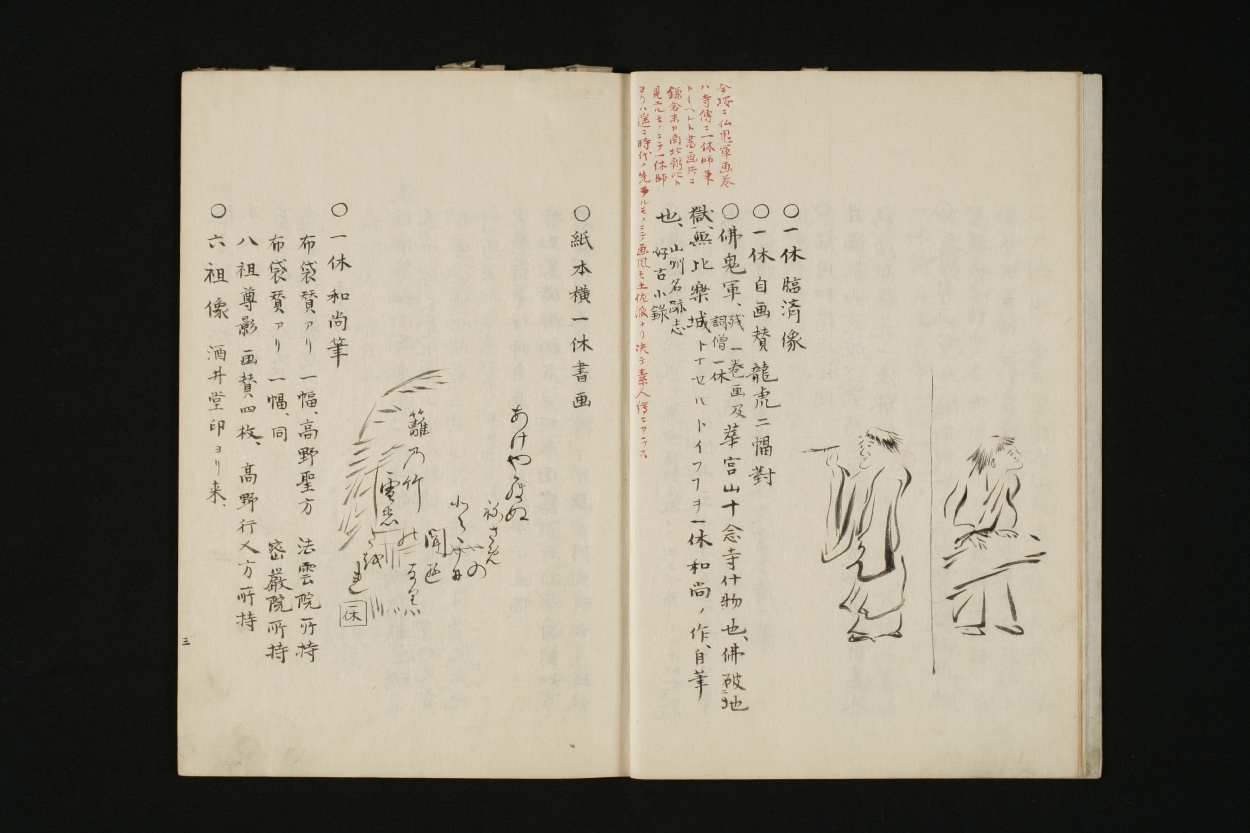 今按ニ仏鬼軍画巻
ハ寺傳ニ一休師筆
トイヘレト書画共ニ
鎌倉末カ南北朝比ト
見エルモノニテ一休師
ヨリハ遥ニ時代ノ先ナルモノニテ画風モ土佐派ナリ决テ素人繪ニアラス
〇一休臨済像
〇一休自画賛龍虎二幅對
〇佛鬼軍、残一巻画及詞僧一休華宮山十念寺什物也、佛破地
獄、無比樂城トナセルトイフヲ一休和尚ノ作、自筆
也、山州名跡志
好古小録
〇紙本横一休書画
あけやらぬ
籬乃竹
聞
一休
〇一休和尚筆
布袋賛アリ 一幅、高野聖方 法雲院所持
布袋賛アリ 一幅、同 密厳院所持
八祖尊影画賛四枚、高野行人方所持
〇六祖像 酒井堂印ヨリ来、
三